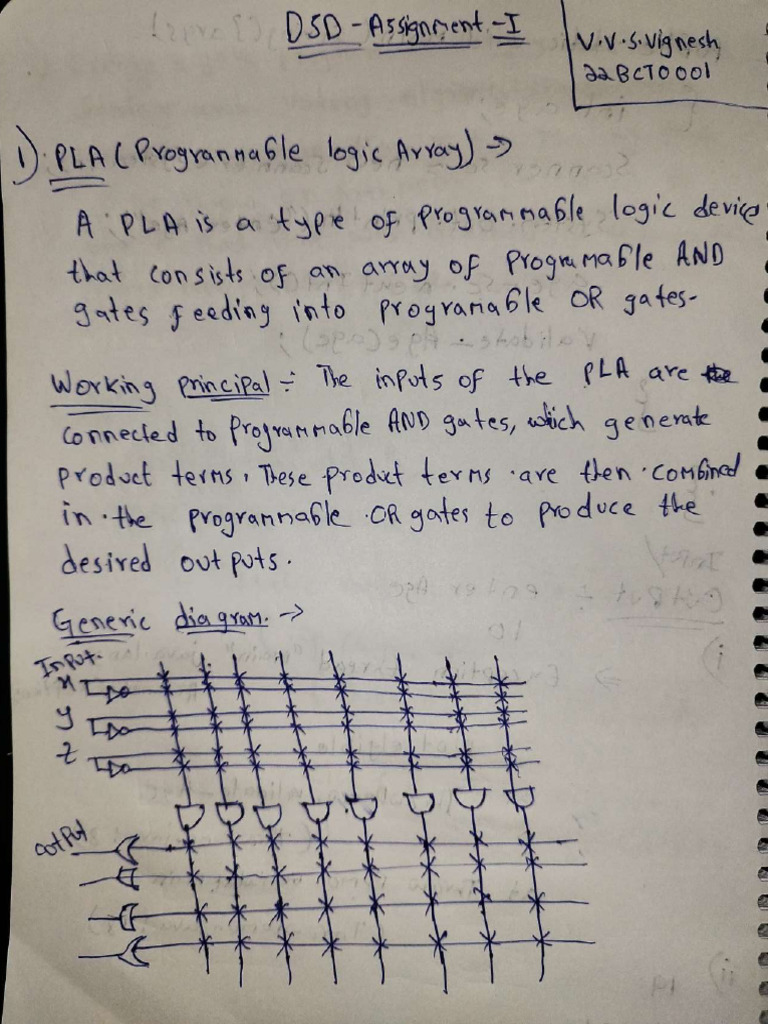 DSD - Assignment - I
V.V.S.Vignesh
22BCT0001
1) PLA (Programmable logic Array) →
A PLA is a type of Programmable logic device
that consists of an array of Programable AND
gates feeding into programable OR gates.
Working principal :- The inputs of the PLA are
connected to Programmable AND gates, which generate
product terms. These product terms are then combined
in the programmable OR gates to produce the
desired outputs.
Generic diagram. →
Input.
x
y
z
output